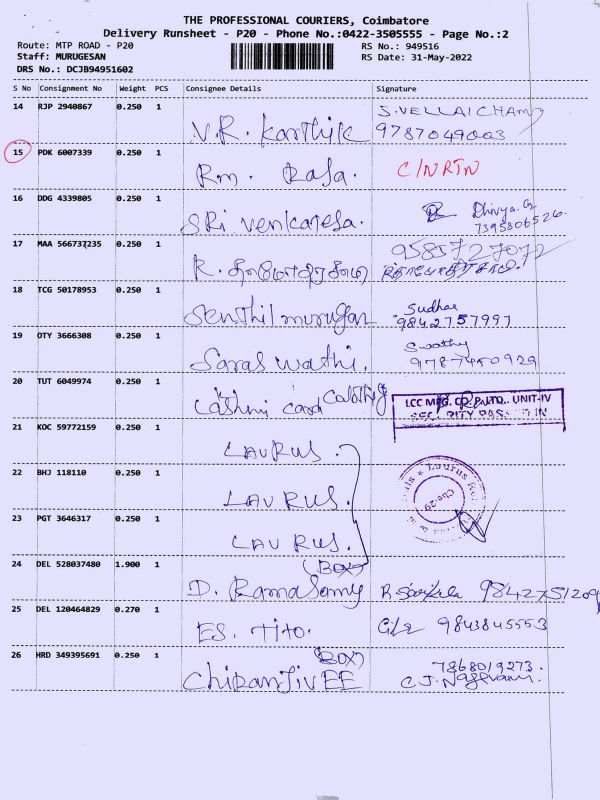 THE PROFESSIONAL COURIERS, Coimbatore
Delivery Runsheet - P20 - Phone No.:0422-3505555 - Page No.:2
Route: MTP ROAD - P20
RS No.: 949516
Staff: MURUGESAN
RS Date: 31-May-2022
DRS No.: DCJB94951602
S No Consignment No Weight PCS Consignee Details Signature
14 RJP 2940867 0.250 1
S. VELLAICHAMY
V.R. Karthik 9787049003
15 PDK 6007339 0.250 1
Rm. Rasa. C/NRTN
16 DDG 4339805 0.250 1
SRi venkatesa. Dhivya. G
7395806526.
17 MAA 566737235 0.250 1
9585727072
R. தாமோதரசாமி
18 TCG 50178953 0.250 1
Senthil murugan Sudhar
9842757997
19 OTY 3666308 0.250 1
Saraswathi. Swathy
9787450929
20 TUT 6049974 0.250 1
card LCC MFG. CO. P. LTD., UNIT-IV
IN
21 KOC 59772159 0.250 1
LAURUS.
22 BHJ 118110 0.250 1
LAURUS. Laurus
Cbe-29
23 PGT 3646317 0.250 1
LAURUS.
24 DEL 528037480 1.900 1 (BOX)
D. Ramasamy 9842751209
25 DEL 120464829 0.270 1
ES. Tito. 9843845553
26 HRD 349395691 0.250 1 (BOX)
7868019273.
ChiranJivEE C.J.